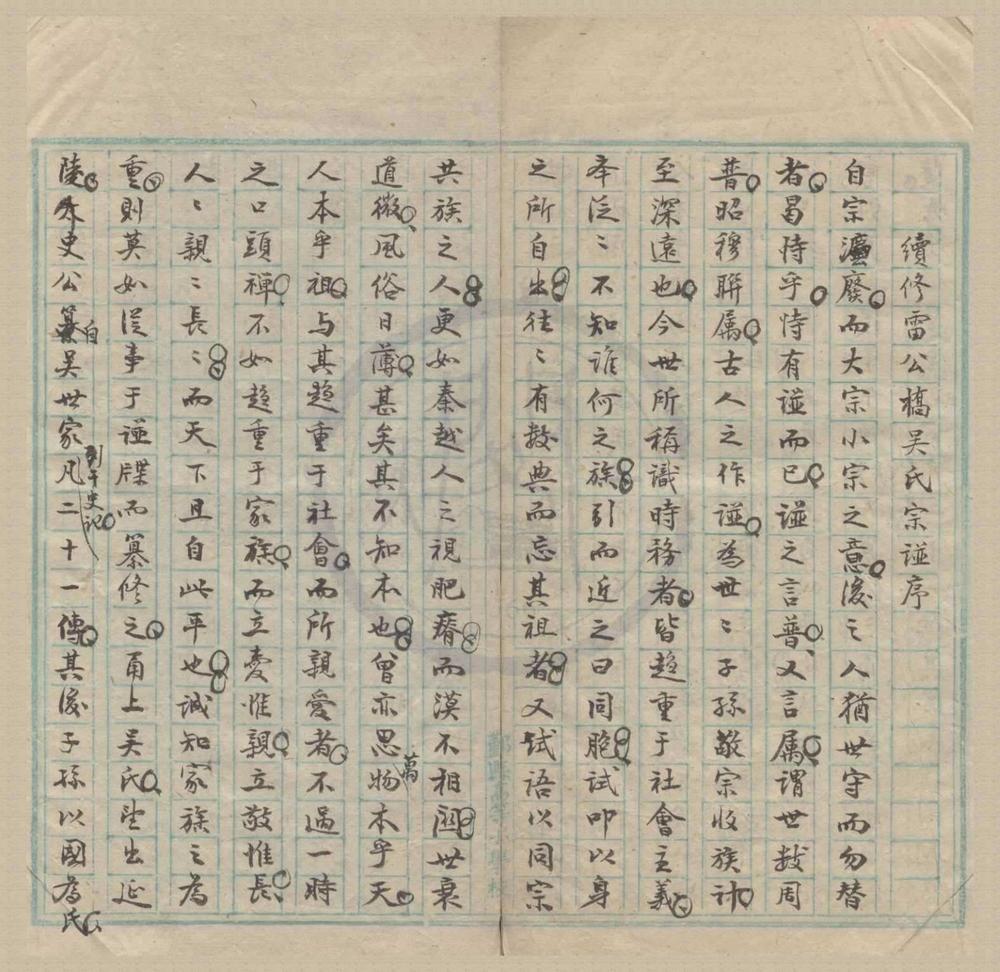 續修雷公橋吴氏宗譜序
自宗灋廢而大宗小宗之意後之人猶世守而勿替
者曷恃乎恃有譜而已譜之言普又言属謂世数周
普昭穆聨属古人之作譜為世〻子孫敬宗收族計
至深遠也今世所稱識時務者皆趋重于社會主義
夲泛〻不知誰何之族引而近之曰同胞試叩以身
之所自出往〻有数典而忘其祖者又试語以同宗
共族之人更如秦越人之視肥瘠而漠不相關世衰
道微風俗日薄甚矣其不知本也曾亦思萬物本乎天
人本乎祖与其趋重于社會而所親愛者不過一時
之口頭禪不如趋重于家族而立愛惟親立敬惟長
人〻親〻長〻而天下且自此平也诚知家族之為
重則莫如從事于譜牒而纂修之甬上吴氏望出延
陵史公自吴世家列于史记凡二十一傳其後子孫以國為氏